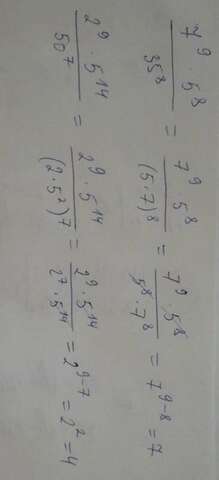 7⁹ · 5⁸ / 35⁸ = 7⁹ · 5⁸ / (5·7)⁸ = 7⁹ · 5⁸ / 5⁸ · 7⁸ = 7⁹⁻⁸ = 7
2⁹ · 5¹⁴ / 50⁷ = 2⁹ · 5¹⁴ / (2·5²)7 = 2⁹ · 5¹⁴ / 2⁷ · 5¹⁴ = 2⁹⁻⁷ = 2² = 4